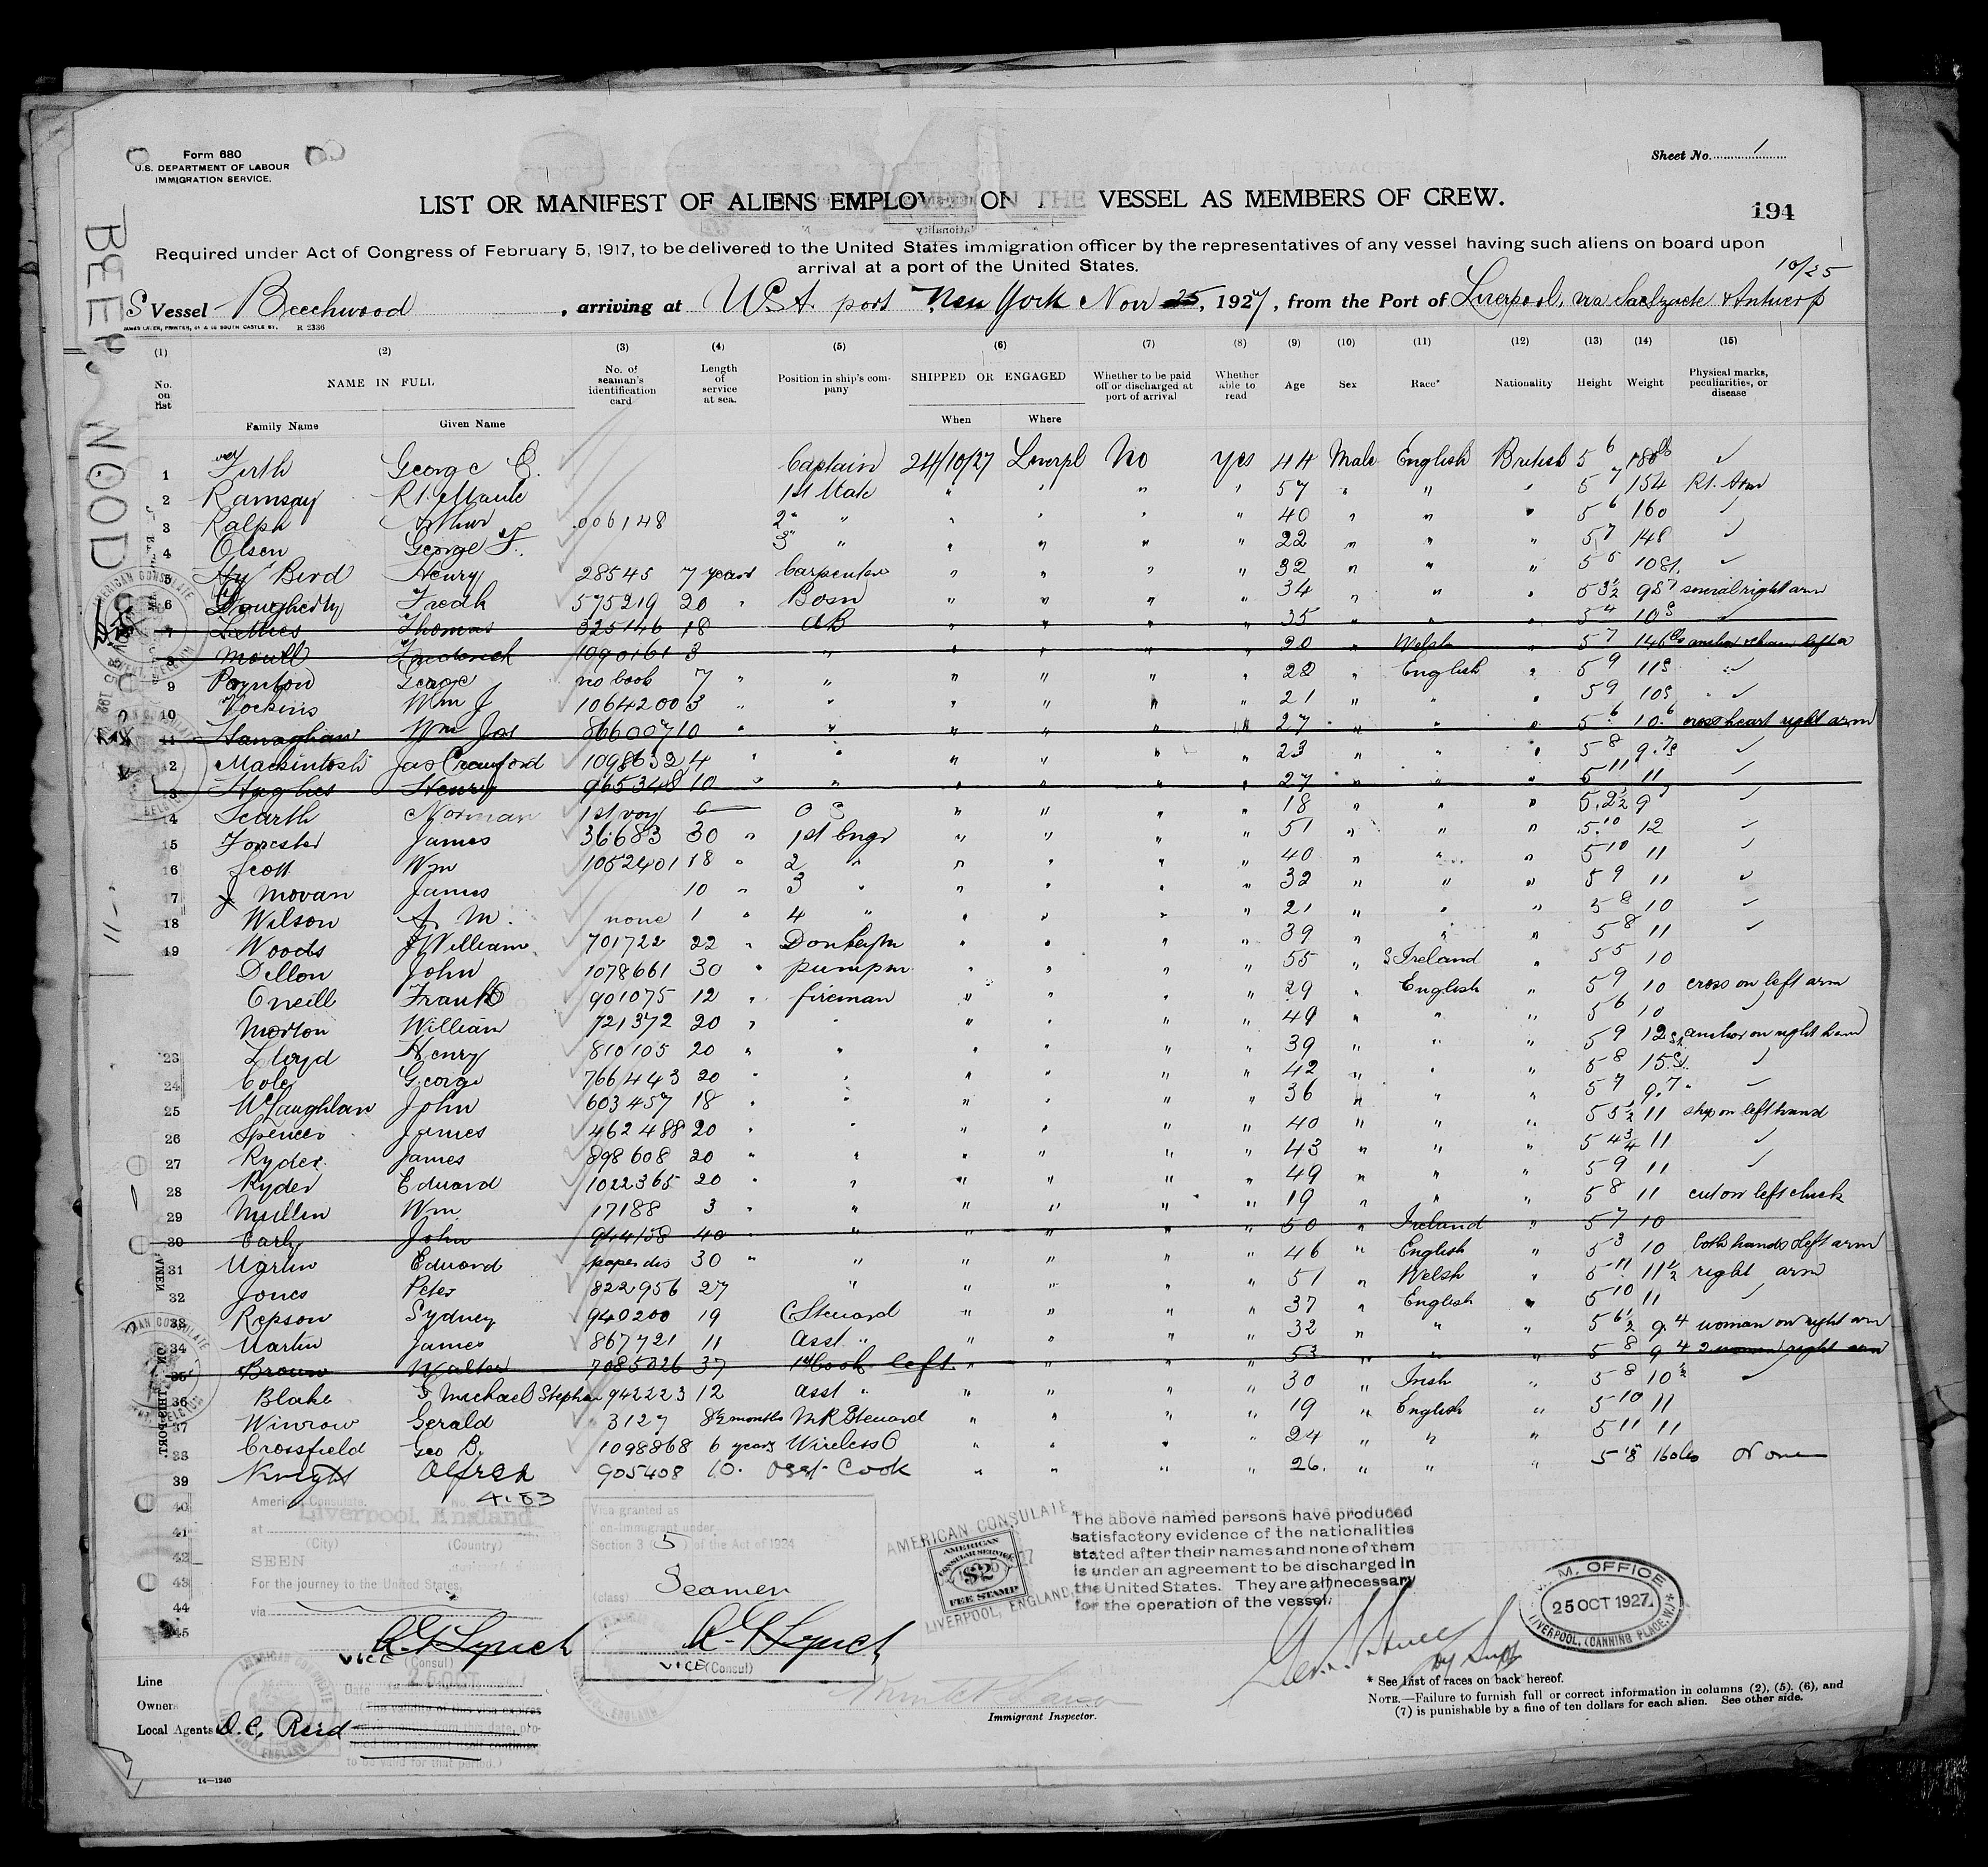 Form 680
U.S. DEPARTMENT OF LABOUR
IMMIGRATION SERVICE.
Sheet No. 1
LIST OR MANIFEST OF ALIENS EMPLOYED ON THE VESSEL AS MEMBERS OF CREW.
194
Required under Act of Congress of February 5, 1917, to be delivered to the United States immigration officer by the representatives of any vessel having such aliens on board upon
arrival at a port of the United States.
10/25
S Vessel Beechwood, arriving at USA port New York Nov 25, 1927, from the Port of Liverpool, via Saelzaete & Antwerp
R 2336
BEECHWOOD
(1) (2) (3) (4) (5) (6) (7) (8) (9) (10) (11) (12) (13) (14) (15)
No. on list NAME IN FULL No. of seaman's identification card Length of service at sea. Position in ship's company SHIPPED OR ENGAGED Whether to be paid off or discharged at port of arrival Whether able to read Age Sex Race* Nationality Height Weight Physical marks, peculiarities, or disease
Family Name Given Name When Where
1 Firth George E. Captain 24/10/27 Liverpl No yes 44 Male English British 5 6 180lb ✓
2 Ramsay Rt. Maule 1st Mate " " " " 57 " " " 5 7 154 Rt. Arm
3 Ralph Arthur 006148 2" " " " " " 40 " " " 5 6 160 ✓
4 Olsen George F. 3" " " " " " 22 " " " 5 7 148 ✓
5 Hy Bird Henry 28545 7 years Carpenter " " " " 32 " " " 5 6 10st. ✓
6 Dougherty Fredk 575219 20 " Bosn " " " " 34 " " " 5 3½ 9s7 several right arm
7 Thomas 325146 18 AB " " " " 35 " " " 5 4 10s ✓
8 Frederick 1090161 3 " " " " " 20 " Welsh " 5 7 146lbs
9 Poynton George no book 7 " " " " " " 28 " English " 5 9 11s ✓
10 Vockins Wm J 1064200 3 " " " " " " 21 " " " 5 9 10s ✓
11 Hanaghan Wm Jos 866007 10 " " " " " " 27 " " " 5 6 10.6 cross heart right arm
12 Mackintosh Jas Crawford 1098632 4 " " " " " " 23 " " " 5 8 9.7s ✓
13 Hughes Henry 965348 10 " " " " " " 27 " " " 5 11 11 ✓
14 Scarth Norman 1st voy O S " " " " 18 " " " 5.2½ 9 ✓
15 Forrester James 36683 30 " 1st Engr " " " " 51 " " " 5.10 12 ✓
16 Scott Wm 1052401 18 " 2 " " " " " 40 " " " 5 10 11 ✓
17 J Movan James 10 " 3 " " " " " 32 " " " 5 9 11 ✓
18 Wilson A. M. none 1 " 4 " " " " " 21 " " " 5 8 10 ✓
19 Woods J William 701722 22 " Donkeym " " " " 39 " " " 5 8 11 ✓
Dillon John 1078661 30 " pumpm " " " " 55 " S Ireland " 5 5 10
Oneill Frank 901075 12 " fireman " " " " 29 " English " 5 9 10 cross on left arm
Morton William 721372 20 " " " " " " 49 " " " 5 6 10 ✓
23 Lloyd Henry 810105 20 " " " " " " 39 " " " 5 9 12st anchor on right hand
24 Cole George 766443 20 " " " " " " 42 " " " 5 8 15st. ✓
25 McLaughlan John 603457 18 " " " " " " 36 " " " 5 7 9.7 ✓
26 Spencer James 462488 20 " " " " " " 40 " " " 5 5½ 11 ship on left hand
27 Ryder James 898608 20 " " " " " " 43 " " " 5 4¾ 11 ✓
28 Ryder Edward 1022365 20 " " " " " " 49 " " " 5 9 11 ✓
29 Mullen Wm 17188 3 " " " " " " 19 " " " 5 8 11 cut on left cheek
30 Early John 944158 40 " " " " " 50 " Ireland " 5 7 10
31 Martin Edward paper dis 30 " " " " " " 46 " English " 5 3 10 both hands & left arm
32 Jones Peter 822956 27 " " " " " 51 " Welsh " 5 11 11½ right arm
33 Repson Sydney 940200 19 C Steward " " " " 37 " English " 5 10 11 ✓
34 Martin James 867721 11 Asst " " " " " 32 " " " 5 6½ 9.4 woman on right arm
35 Brown Walter 7085026 37 1st Cook left " " " " 53 " " " 5 8 9 4 2 women right arm
36 Blake Michael Stephen 942223 12 asst " " " " " 30 " Irish " 5 8 10½ ✓
37 Winrow Gerald 3127 8½ months M R Steward " " " " 19 " English " 5 10 11
38 Crossfield Geo B. 1098868 6 years Wireless O " " " " 24 " " " 5 11 11
39 Knight Alfred 905408 10. Asst Cook " " " " 26. " " " 5 8 160lbs None
4183
40
41
42
43
44
45
American Consulate. No.
at Liverpool, England
(City) (Country)
SEEN
For the journey to the United States,
via
A G Lynch
VICE (Consul)
Date 25 OCT
The validity of this visa expires
to be valid for that period.)
Visa granted as
Non-Immigrant under
Section 3 (5) of the Act of 1924
(class) Seamen
A G Lynch
VICE (Consul)
AMERICAN CONSULATE
AMERICAN CONSULAR SERVICE
$2
FEE STAMP
LIVERPOOL, ENGLAND
The above named persons have produced
satisfactory evidence of the nationalities
stated after their names and none of them
is under an agreement to be discharged in
the United States. They are all necessary
for the operation of the vessel.
M.M. OFFICE
25 OCT 1927
LIVERPOOL, (CANNING PLACE, W.)
Line
Owners
Local Agents D. C. Reid
Immigrant Inspector.
* See List of races on back hereof.
NOTE.—Failure to furnish full or correct information in columns (2), (5), (6), and
(7) is punishable by a fine of ten dollars for each alien. See other side.
14—1240